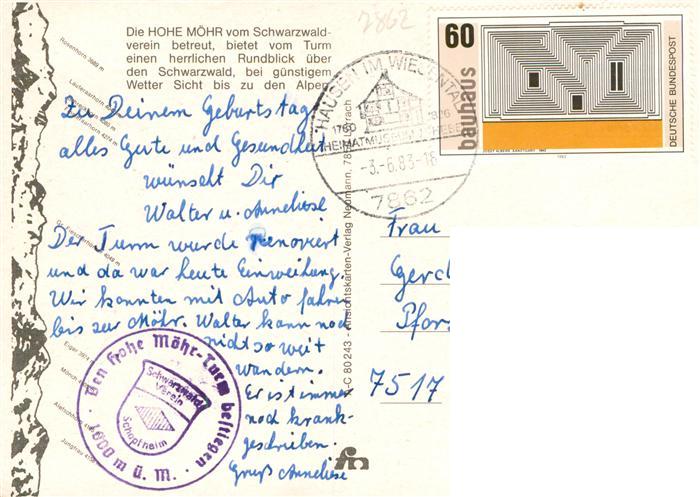 2862
Die HOHE MÖHR vom Schwarzwald-
verein betreut, bietet vom Turm
einen herrlichen Rundblick über
den Schwarzwald, bei günstigem
Wetter Sicht bis zu den Alpen
Zu Deinem Geburtstag
alles Gute und Gesundheit
wünscht Dir
Walter u. Anneliese
Der Turm wurde renoviert
und da war heute Einweihung.
Wir konnten mit Auto fahren
bis zur Möhr. Walter kann noch
nicht so weit
wandern.
Er ist immer
noch krank-
geschrieben.
Gruß Anneliese
Den Hohe Möhr-Turm bestiegen
1000 m ü. M.
Schwarzwald-
Verein
Schopfheim
Rosenhorn 3689 m
Eiger
Mönch
Aletschhorn
Jungfrau
C 80 243 - Ansichtskarten-Verlag Neumann, 785 Lörrach
HAUSEN IM WIESENTAL
1760
HEIMATMUSEUM
-3.-6.83-18
7862
60
bauhaus
DEUTSCHE BUNDESPOST
JOSEF ALBERS, SANCTUARY, 1942
1983
Frau
Gerd
Pfor
7517